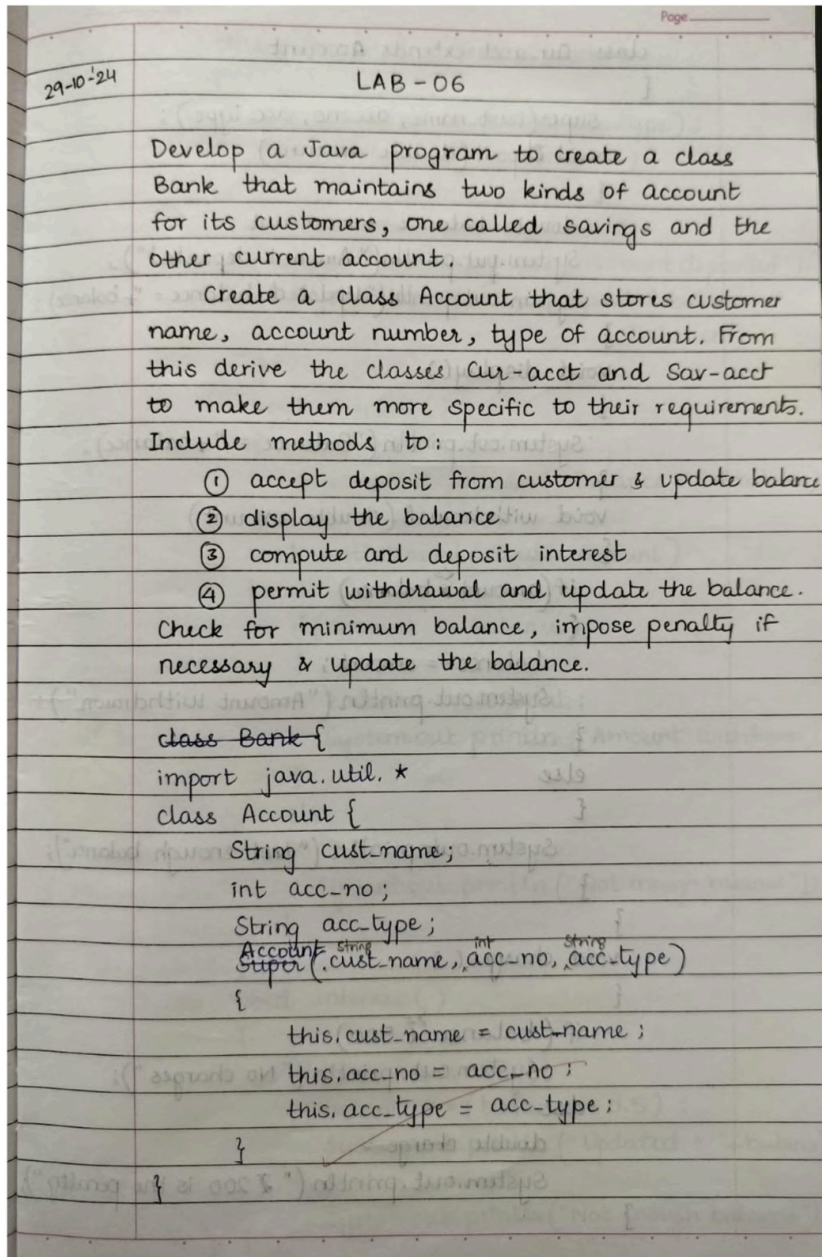 Page
29-10-'24
LAB-06
Develop a Java program to create a class
Bank that maintains two kinds of account
for its customers, one called savings and the
other current account.
Create a class Account that stores customer
name, account number, type of account. From
this derive the classes Cur-acct and Sav-acct
to make them more specific to their requirements.
Include methods to:
① accept deposit from customer & update balance
② display the balance
③ compute and deposit interest
④ permit withdrawal and update the balance.
Check for minimum balance, impose penalty if
necessary & update the balance.
class Bank {
import java.util.*
class Account {
String cust_name;
int acc_no;
String acc_type;
Account String int String
Super (cust_name, acc_no, acc_type)
{
this.cust_name = cust_name;
this.acc_no = acc_no;
this.acc_type = acc_type;
}
}